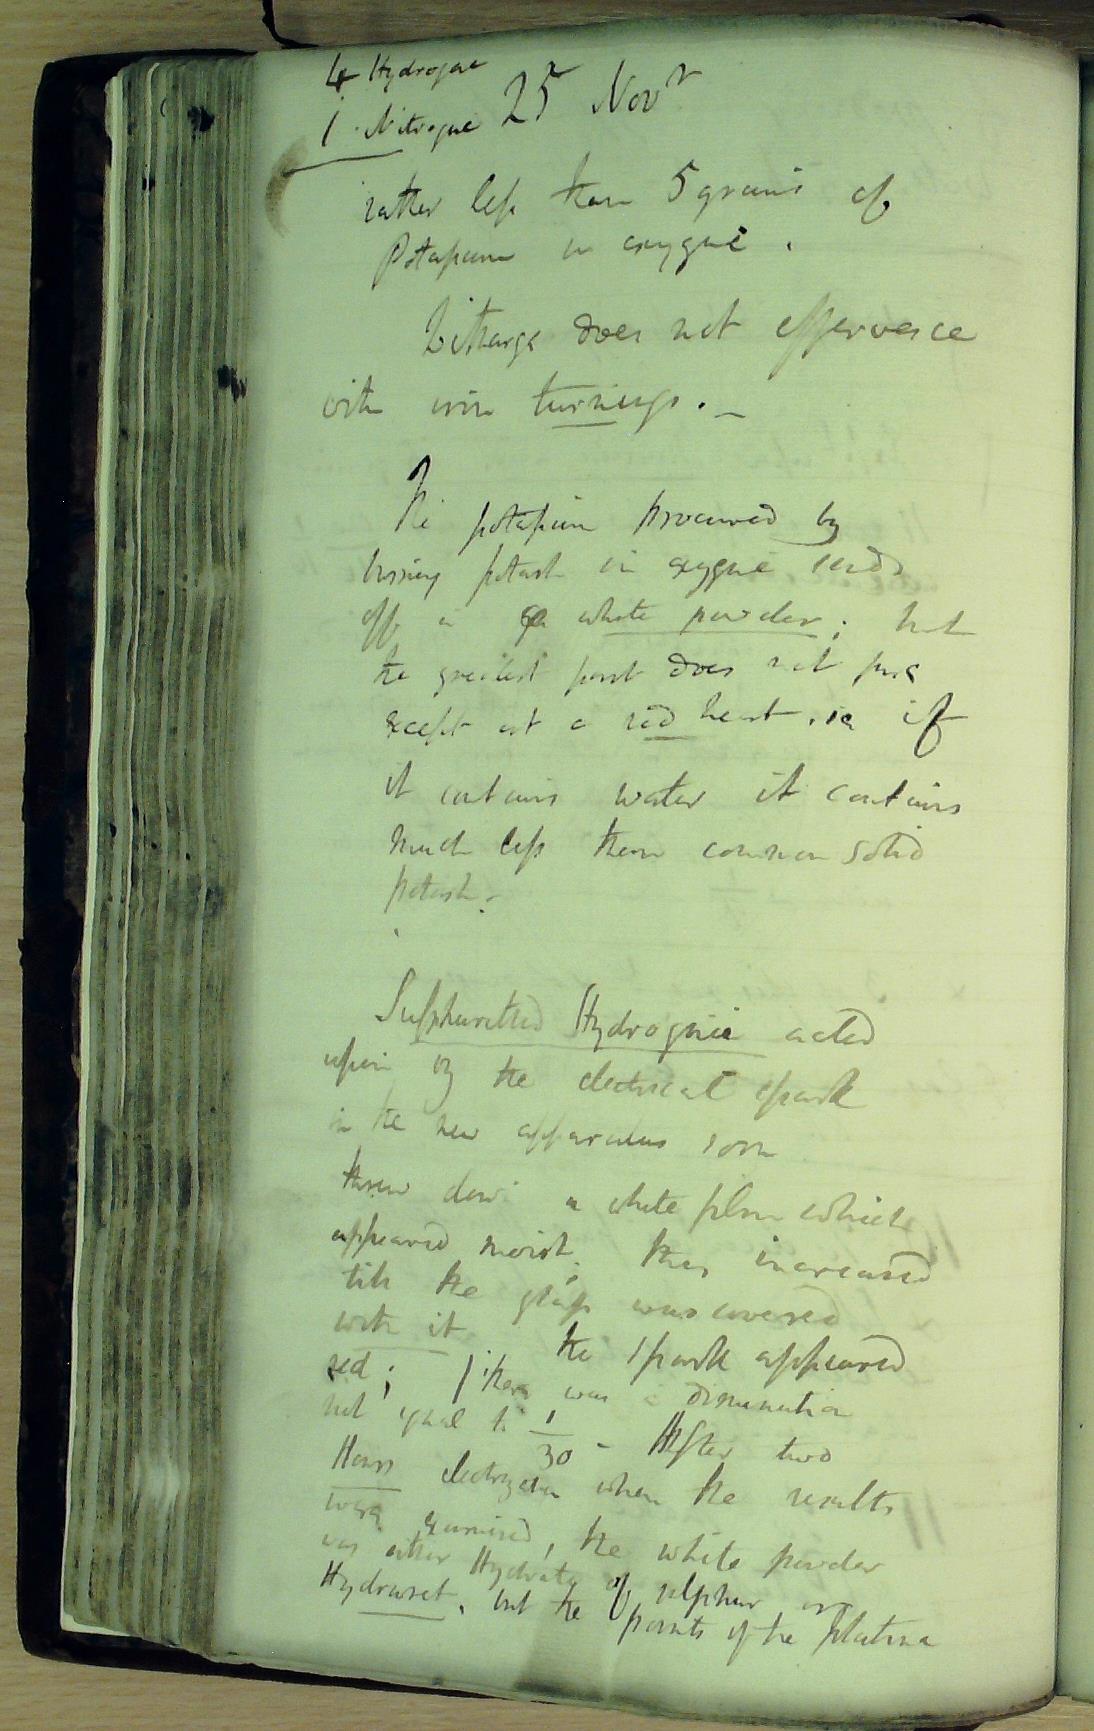 4 Hydrogene
1 · Nitrogene 25 Novr
rather less than 5 grains of
Potassium in oxygene.
Litharge does not effervesce
with iron turnings. –
The potassium procured by
burning potash in oxygene sends
off a white powder; but
the greatest part does not fuse
except at a red heart. so if
it contains water it contains
much less than common solid
potash. –
Sulphuretted Hydrogene acted
upon by the electrical spark
in the new apparatus soon
threw down a white film which
appeared moist; this increased
till the glass was covered
with it the spark appeared
red; there was a diminution
not equal to 1/30 – After two
Hours electrization when the results
were examined, the white powder
was either Hydrate of sulphur or
Hydruret. but the points of the platina